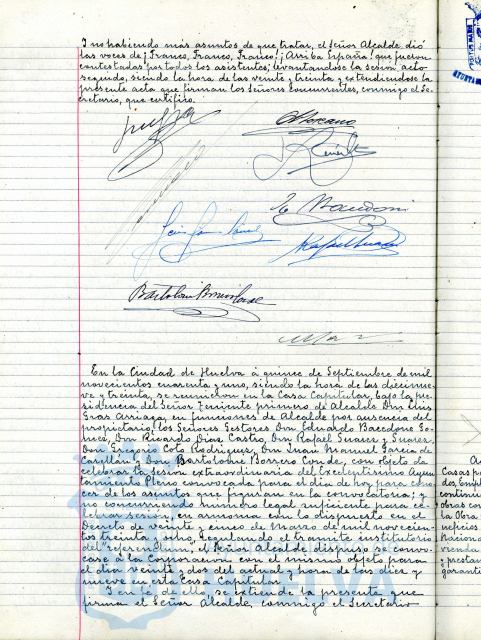 Y no habiendo más asuntos de que tratar, el Señor Alcalde, dió
las voces de ¡Franco, Franco, Franco! ¡Arriba España! que fueron
contestadas por todos los asistentes; levantandose la sesion acto
seguido, siendo la hora de las veinte y treinta y extendiendose la
presente acta que firman los Señores concurrentes, conmigo el Se-
cretario, que certifico.
Rafael Suarez
Bartolomé Borrero Conde
En la Ciudad de Huelva á quince de Septiembre de mil
novecientos cuarenta y uno, siendo la hora de las diecinue-
ve y treinta, se reunieron en la Casa Capitular, bajo la pre-
sidencia del Señor Teniente primero de Alcalde Don Luis
Gras Arriaga, en funciones de Alcalde por ausencia del
propietario, los Señores Gestores Don Eduardo Bacedone Gó-
mez, Don Ricardo Dias Castro, Don Rafael Suarez y Suarez,
Don Gregorio Coto Rodriguez, Don Juan Manuel Garcia de
Don Bartolomé Borrero Conde, con objeto de
celebrar la sesion extraordinaria del Excelentisimo Ayun-
tamiento Pleno convocada para el dia de hoy para cono-
cer de los asuntos que figuran en la convocatoria; y
no concurriendo numero legal suficiente para ce-
lebrar sesion, en armonia con lo dispuesto en el
Decreto de veinte y cinco de Marzo de mil novecien-
tos treinta y ocho, regulando el tramite institutorio
del "referendum", el Señor Alcalde, dispuso se convo-
case á la Corporacion con el mismo objeto para
el dia veinte y dos del actual y hora de las diez y
nueve en esta Casa Capitular.
Y en fe de ello, se extiende la presente que
firma el Señor Alcalde, conmigo el Secretario
Casas
continu
obras con
la Obra
Nacional
venda
y prestan
garantí